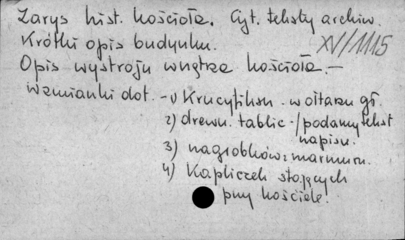 Zarys hist. kościoła. Cyt. teksty archiw.
XV/1115
Krótki opis budynku.
Opis wystroju wnętrza kościoła.—
Wzmianki dot. – 1) Krucyfiksu w ołtarzu gł.
2) drewn. tablic – /podamy tekst napisu.
3) nagrobków z marmuru.
4) Kapliczek stojących
przy kościele.